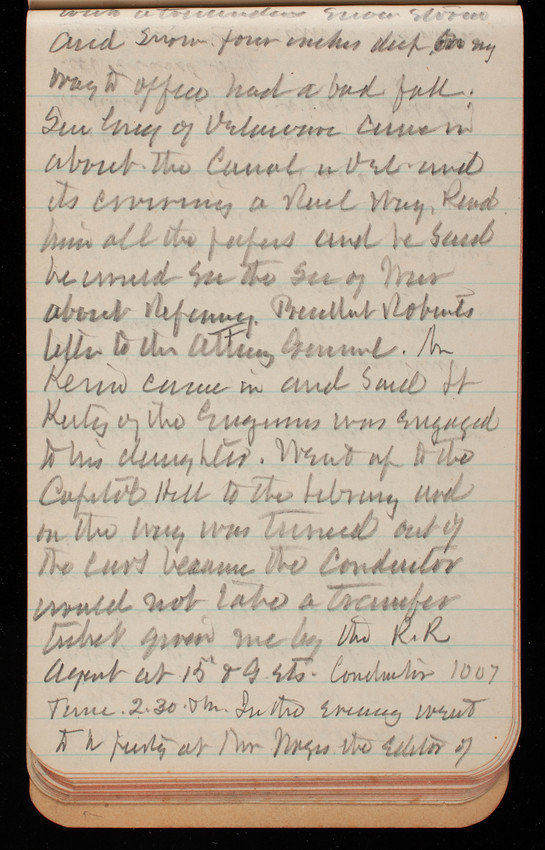 with a tremendous Snow Storm
and Snow four inches deep, On my
way to office had a bad fall.
Sen Gray of Delaware came in
about the Canal in Del and
its crossing a Rail Way. Read
him all the papers and he Said
he would See the Sec of War
about Refering President Roberts
letter to the Attorney General. Mr
came in and Said Lt
of the Engineers was engaged
to his daughter. Went up to the
Capitol Hill to the Library and
on the way was turned out of
the cars because the Conductor
would not take a transfer
ticket given me by the R.R
Agent at 15 & G. sts. Conductor 1007
Time. 2.30. In the Evening went
to a party at Mr Noyes the Editor of